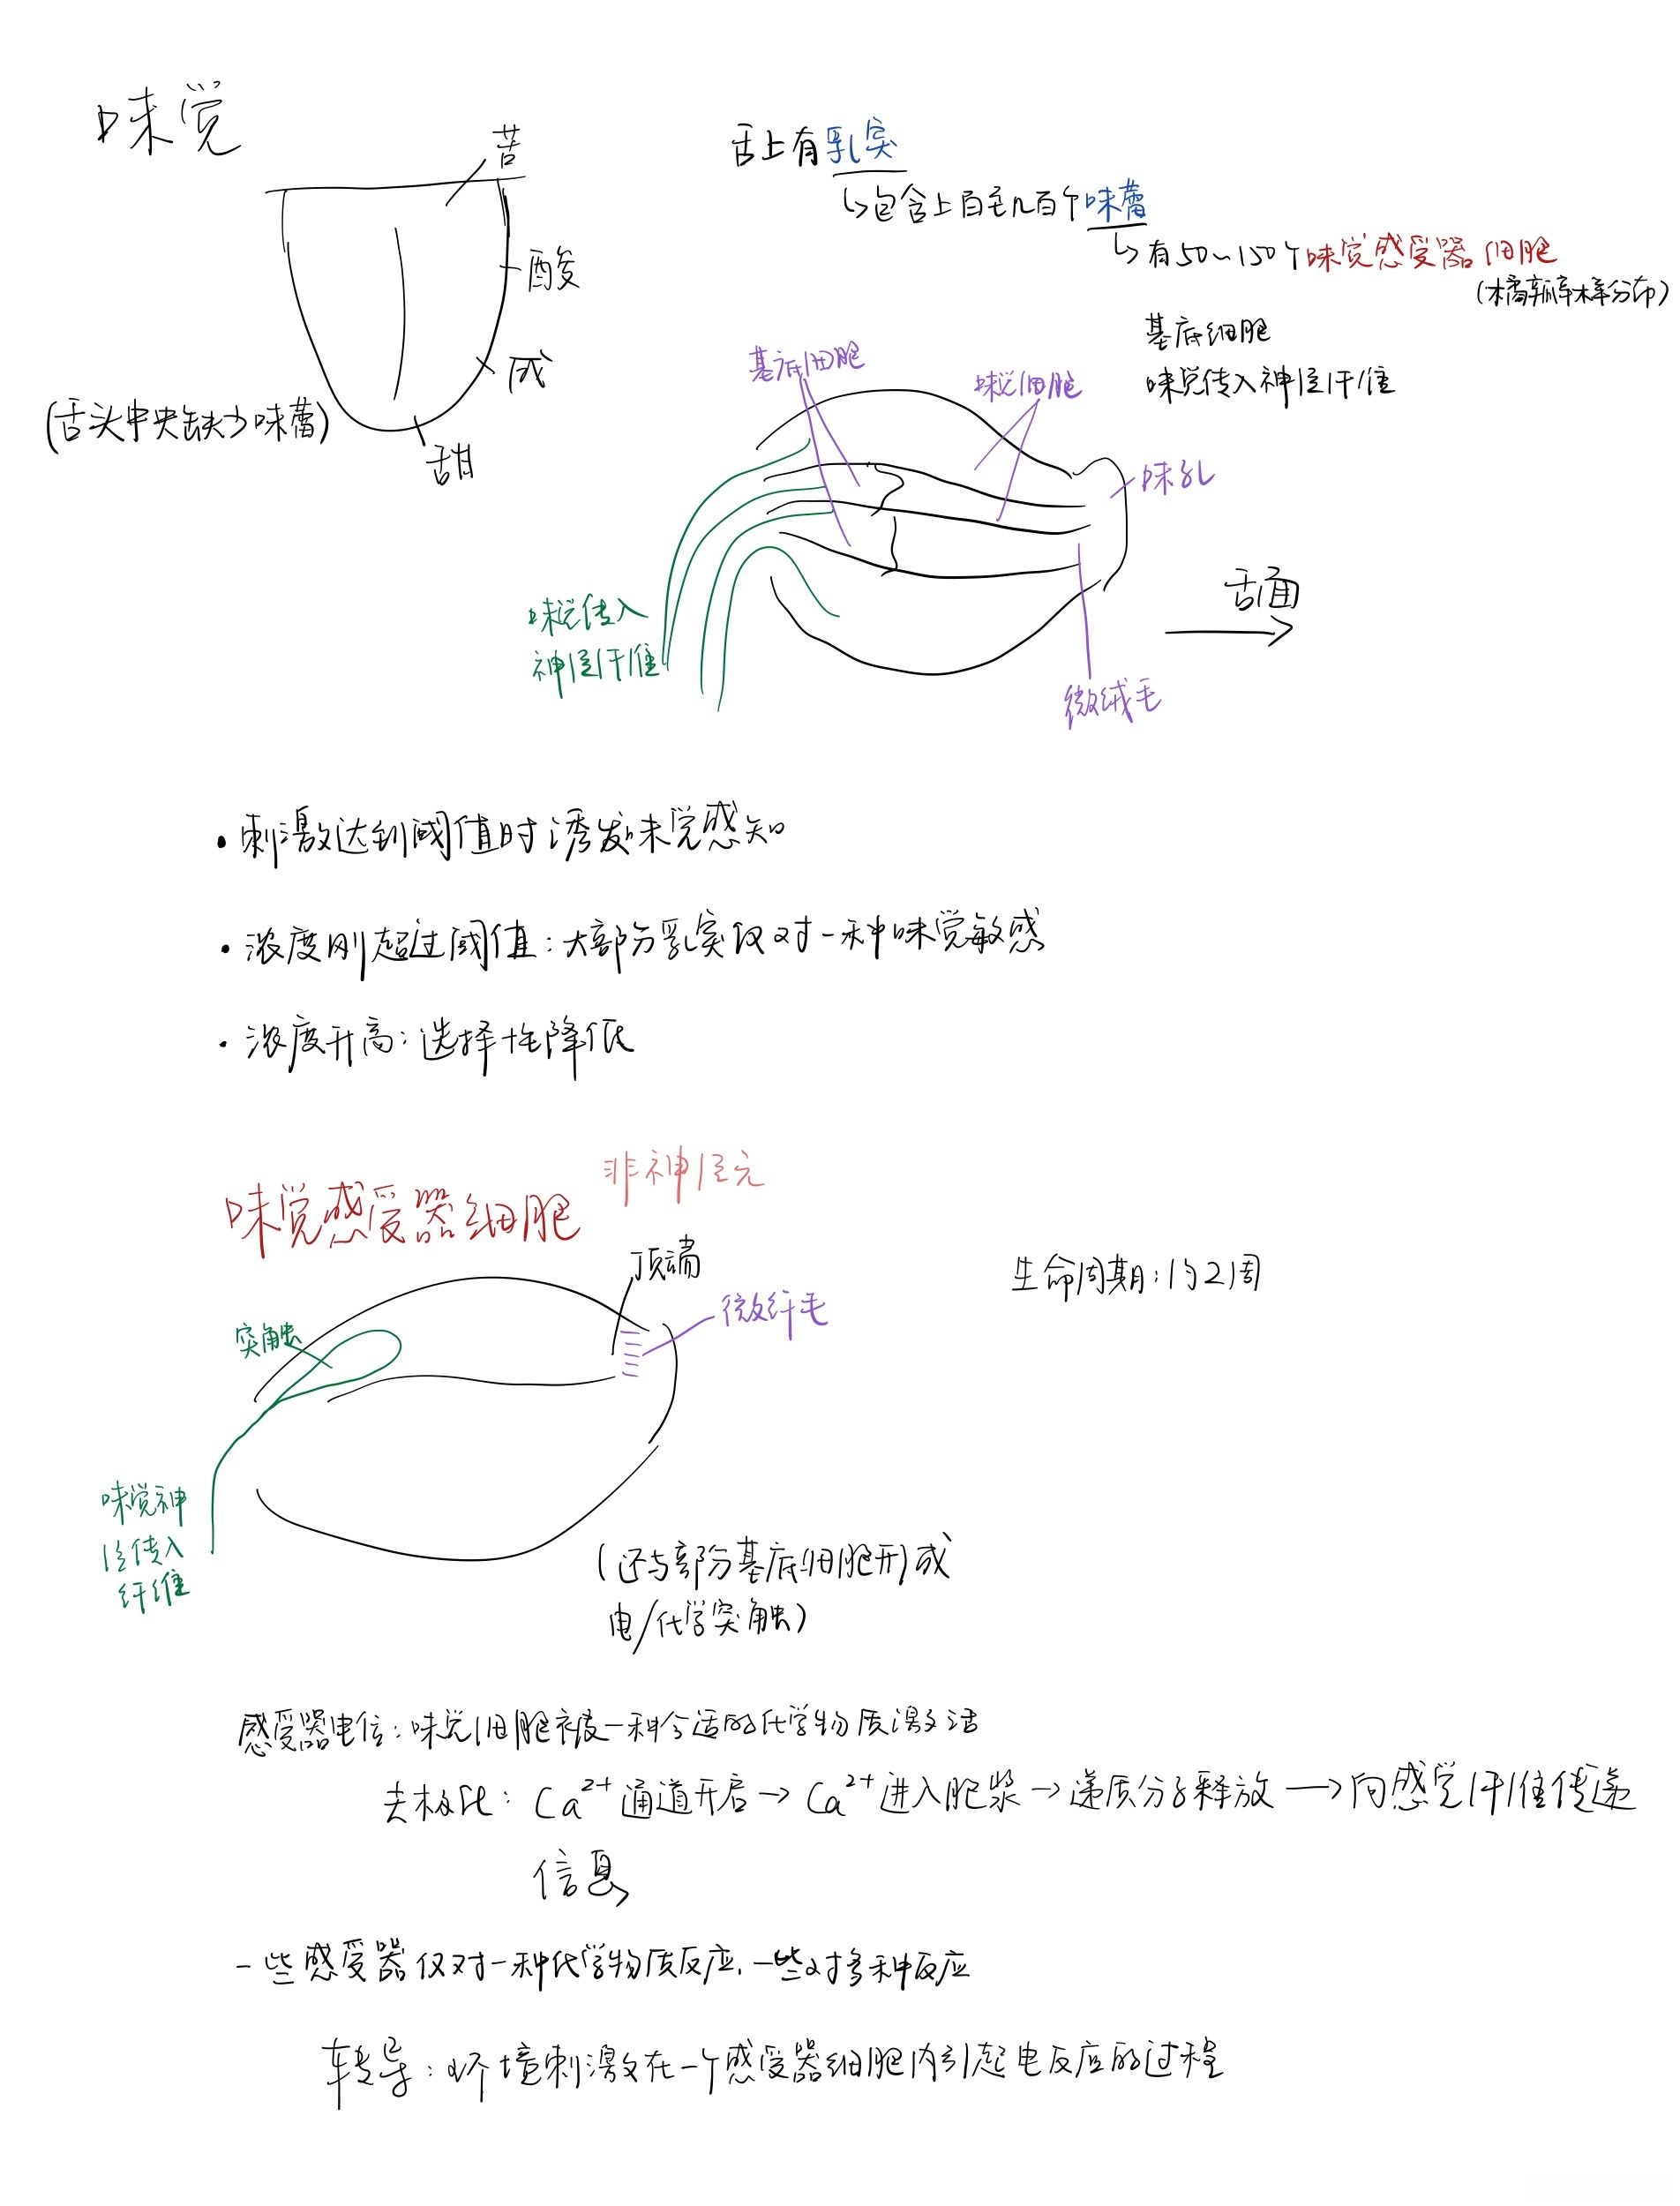 味觉
苦
酸
咸
甜
(舌头中央缺少味蕾)
舌上有乳突
↳包含上百至几百个味蕾
↳有50~150个味觉感受器细胞
(橘瓣样分布)
基底细胞
味觉传入神经纤维
基底细胞
味觉细胞
味孔
味觉传入
神经纤维
舌面
微绒毛
·刺激达到阈值时诱发味觉感知
·浓度刚超过阈值:大部分乳突仅对一种味觉敏感
·浓度升高:选择性降低
味觉感受器细胞
非神经元
顶端
微纤毛
突触
生命周期:约2周
味觉神
经传入
纤维
(还与部分基底细胞形成
电/化学突触)
感受器电位:味觉细胞被一种合适的化学物质激活
去极化:Ca²⁺通道开启→Ca²⁺进入胞浆→递质分子释放→向感觉纤维传递
信息
一些感受器仅对一种化学物质反应,一些对多种反应
转导:环境刺激在一个感受器细胞内引起电反应的过程